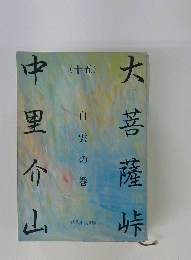 大菩薩峠
（十五）
白雲の巻
中里介山